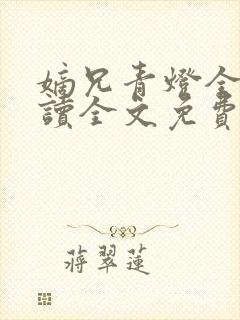 嫡兄青燈全
讀全文免費
蔣翠蓮